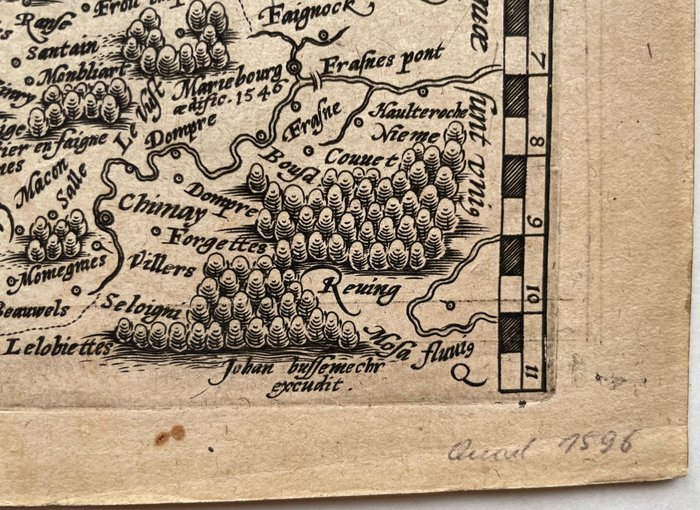 Faignock
Ranse
Santain
Monbliart
Mariebourg
ædific. 1546
Frasnes pont
Frasne
Haulteroche
Nieme
sunt
Dompre
Couvet
Macon
Salle
Dompre
Chimay
Forgettes
Momegnies
Villers
Reving
Beauwels
Seloigni
Lelobiettes
Mosa fluvig
Johan bussemechr
excudit.
7
8
9
10
11
1596